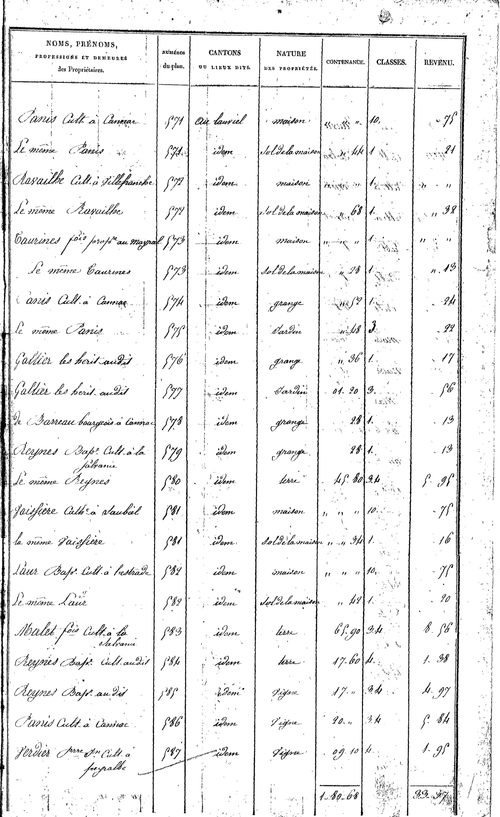 NOMS, PRÉNOMS, PROFESSIONS ET DEMEURES des Propriétaires. NUMÉROS du plan. CANTONS OU LIEUX DITS. NATURE DES PROPRIÉTÉS. CONTENANCE. CLASSES. REVENU.
Panis Cult. à Cannac 571 au lauviel maison " " " 10. " 75
Le même Panis 571 idem Sol de la maison " 44 1 " 21
Ravailhe Cult. à Villefranche 572 idem maison 1. " "
Le même Ravailhe 572 idem Sol de la maison " 68 1. " 38
Taurines fois prop.re au mayral 573 idem maison " " " 1. " "
Le même Taurines 573 idem Sol de la maison " 28 1. " 13
Panis Cult. à Cannac 574 idem grange " 52 1. 24
Le même Panis 575 idem Jardin " 48 3. 22
Galtier les herit. audit 576 idem grange " 36 1. 17
Galtier les herit. audit 577 idem Jardin 01. 20 3. 56
de Barreau bourgeois à Cannac 578 idem grange 28 1. 13
Reynes Bap.te Cult. à la Salvanie 579 idem grange 28 1. 13
Le même Reynes 580 idem terre 45. 80 3.4 5. 95
Vaissière Cult. à 581 idem maison " " " 10. 75
le même Vaissière 581 idem Sol de la maison " 34 1. 16
Laur Bap.te Cult. à lestrade 582 idem maison " " " 10. 75
Le même Laur 582 idem Sol de la maison " 42 1. 20
Malet fois Cult. à la Salvanie 583 idem terre 65. 90 3.4 8. 56
Reynes Bap.te Cult. audit 584 idem terre 17. 60 4. 1. 38
Reynes Bap.te audit 585 idem Vigne 17. " 3.4 4. 97
Panis Cult. à Cannac 586 idem Vigne 20. " 3.4 5. 84
Verdier pierre Cult. à 587 idem Vigne 09. 10 4. 1. 95
1. 80. 68 33. 37